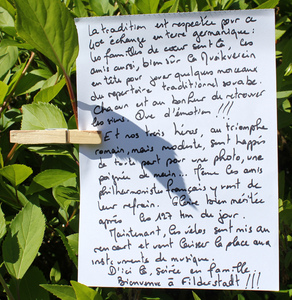 La tradition est respectée pour ce
40è échange en terre germanique :
les familles de cœur sont là, les
amis aussi, bien sûr la Musikverein
en tête pour jouer quelques morceaux
du répertoire traditionnel souabe.
Chacun est au bonheur de retrouver
les siens. Que d'émotion !!!
Et nos trois héros, au triomphe
romain, mais modeste, sont happés
de toute part pour une photo, une
poignée de main... Même les amis
philharmonistes français y vont de
leur refrain. Gloire bien méritée
après les 127 km du jour.
Maintenant, les vélos sont mis au
rencart et vont laisser la place aux
instruments de musique.
D'ici là, soirée en famille.
Bienvenue à Filderstadt !!!